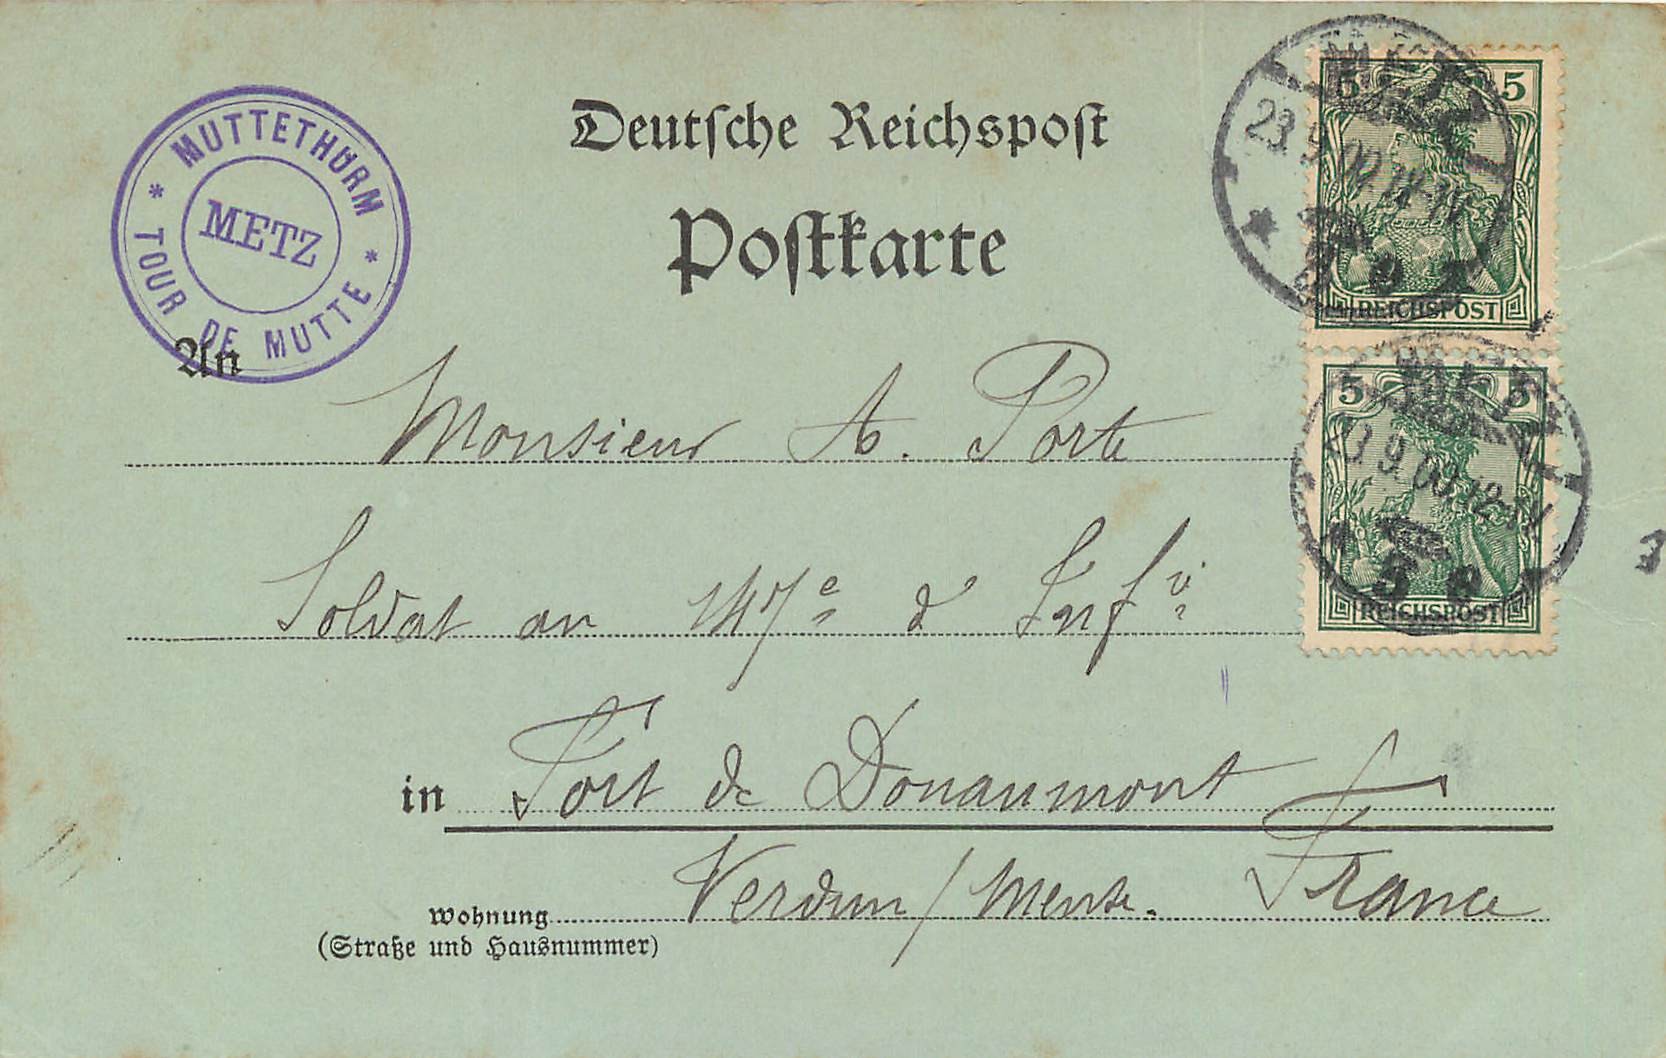 MUTTETHURM
METZ
* TOUR DE MUTTE *
Deutsche Reichspost
Postkarte
An
Monsieur A. Porte
Soldat au 147e d'Infie
in Fort de Douaumont
Verdun / Meuse. France
Wohnung
(Straße und Hausnummer)
5 5
METZ
23.9.00
REICHSPOST
5 5
METZ
23.9.00
REICHSPOST